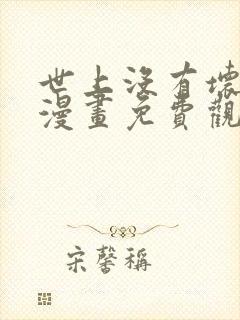 世上沒有壞
漫畫免費觀
宋馨稱